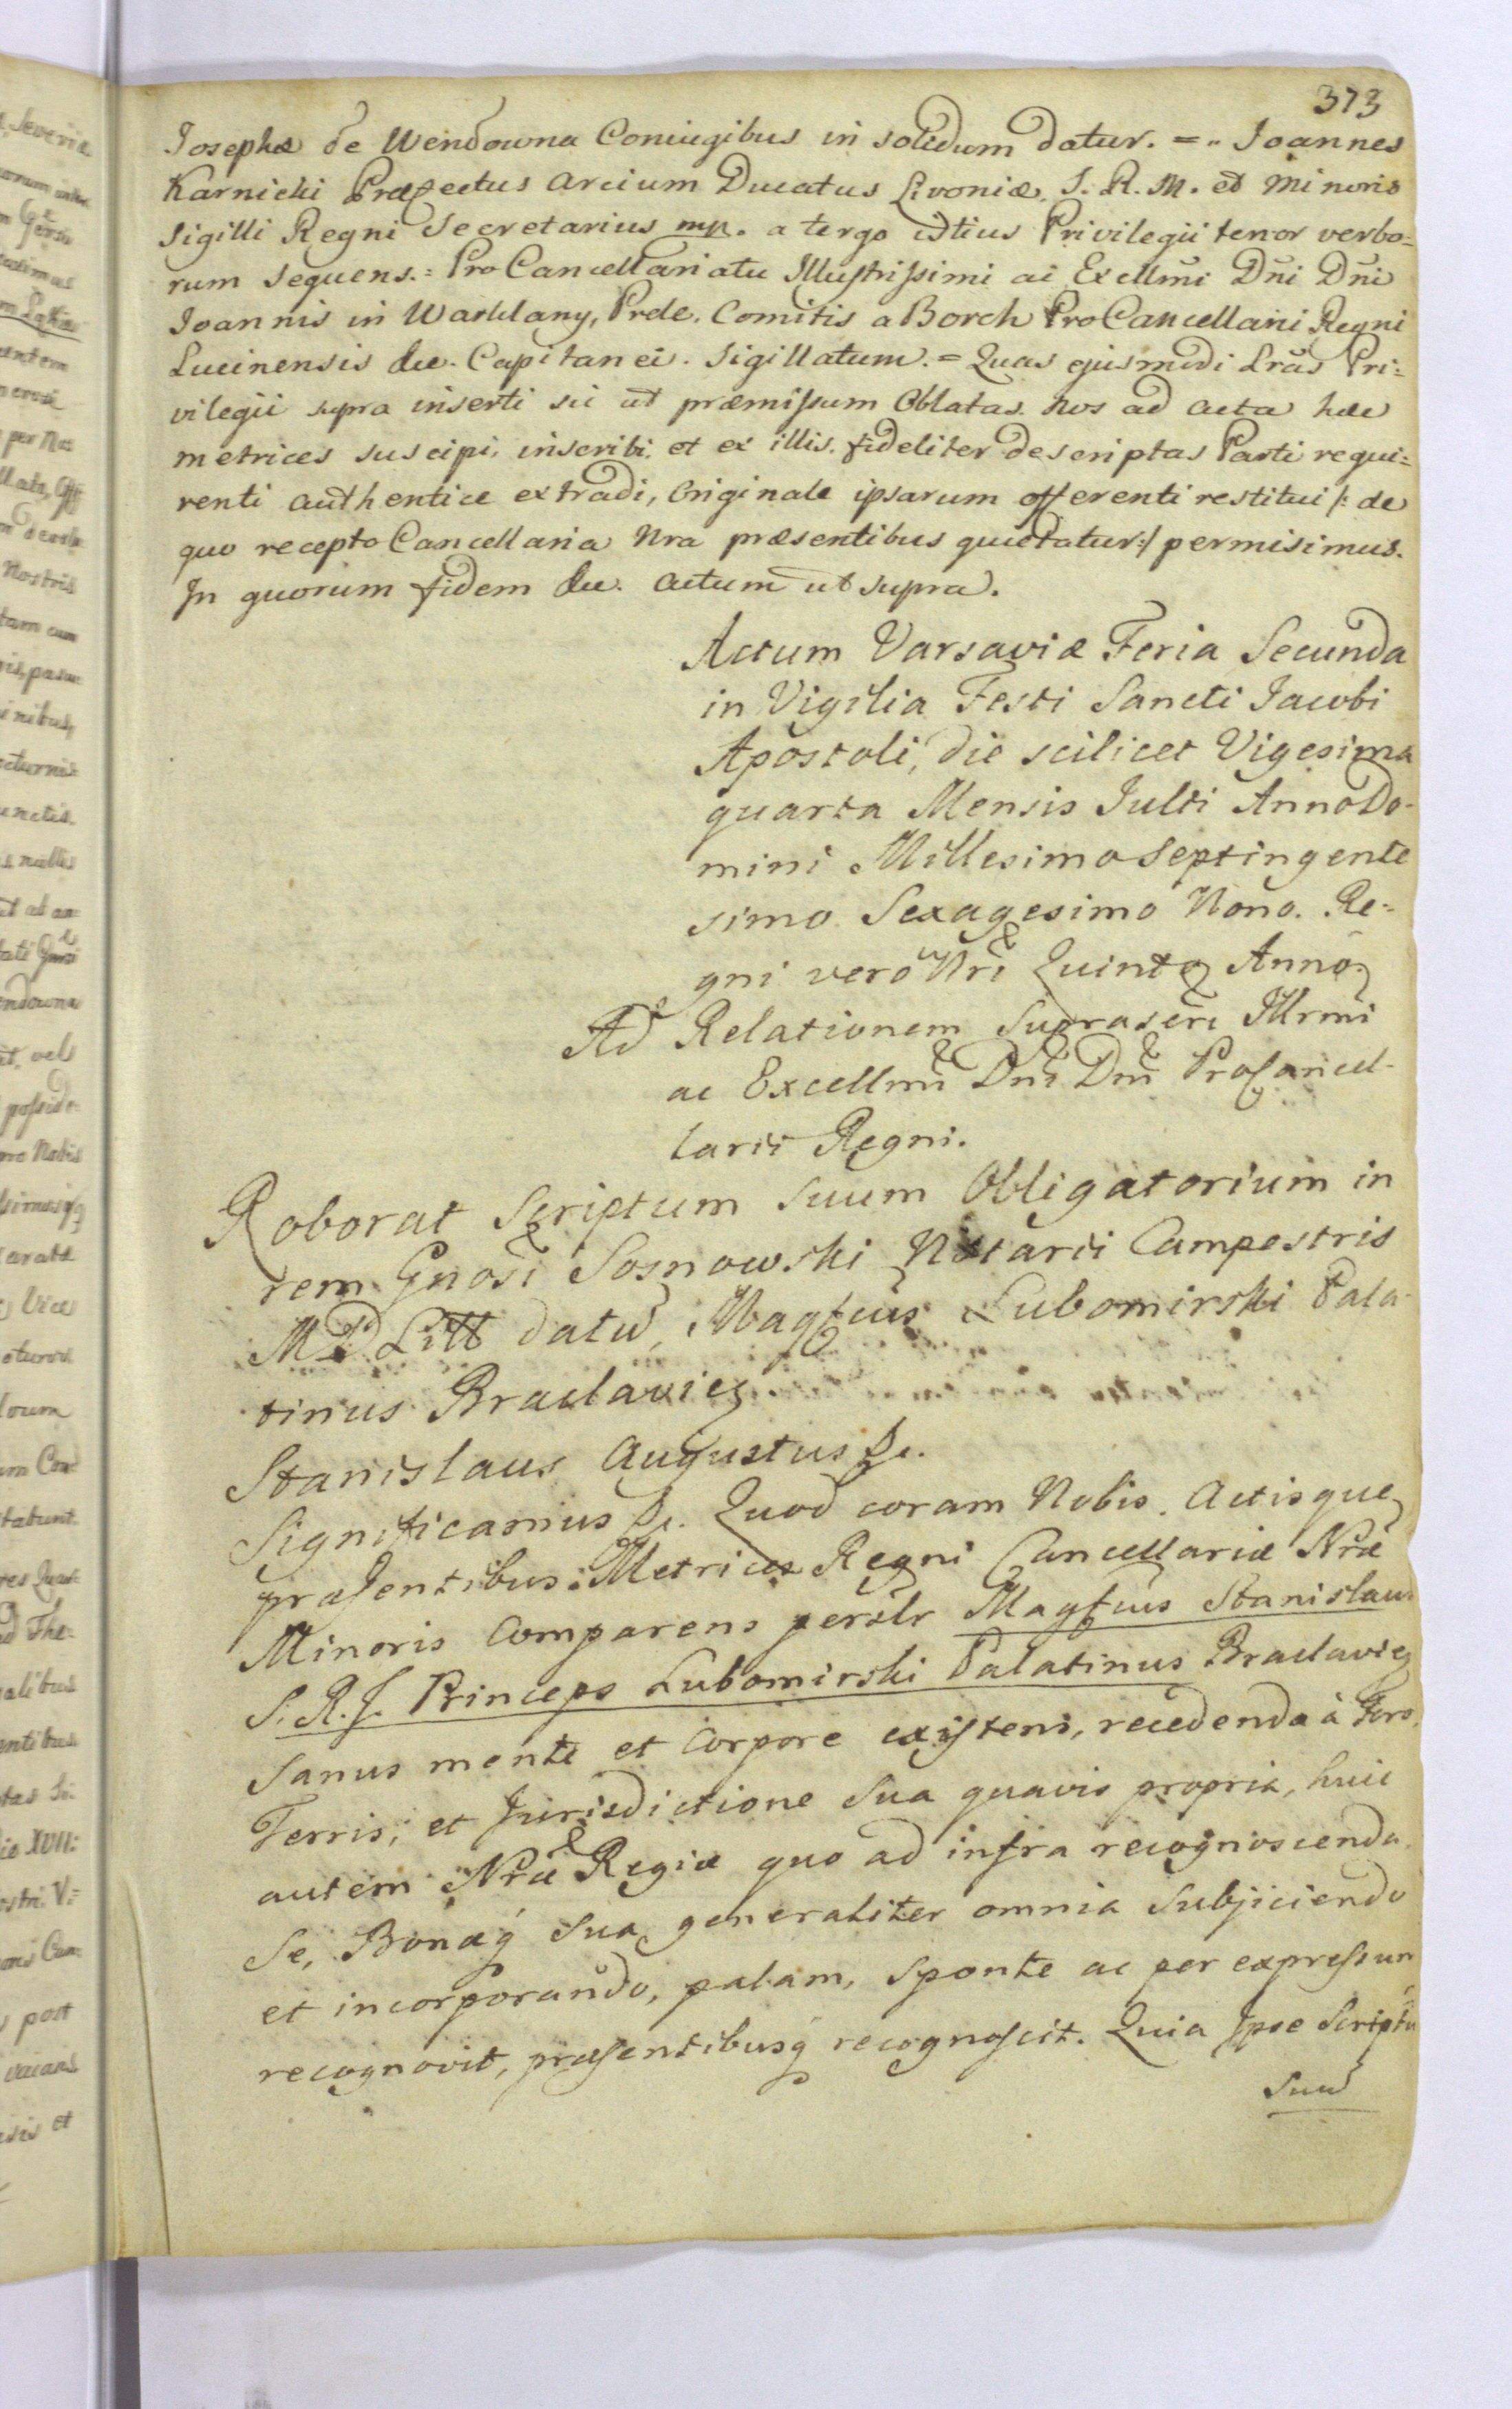 373
Josephæ de Wendowna Coniugibus in solidum datur. = „ Joannes
Karnicki Præfectus arcium Ducatus Livoniæ, S. R. M. et Minoris
Sigilli Regni Secretarius mp. a tergo istius Privilegii tenor verbo=
rum sequens. = Pro Cancellariatu Illustrissimi ac Excellmi Dni Dni
Joannis in Warklany, Prele. Comitis a Borch ProCancellarii Regni
Lucinensis &c. Capitanei. Sigillatum. = Quas ejusmodi Lras Pri=
vilegii supra inserti sic ut præmissum Oblatas. Nos ad acta hæc
metrices suscipi, inscribi, et ex illis. fideliter descriptas Parti requi=
renti authentice extradi, Originale ipsarum offerenti restitui /: de
quo recepto Cancellaria Nra præsentibus quietatur :/ permisimus.
In quorum fidem &c. actum ut supra.
Actum Varsaviæ Feria Secunda
in Vigilia Festi Sancti Jacobi
Apostoli, die scilicet Vigesima
quarta Mensis Julii Anno Do-
mini Millesimo Septingente
simo Sexagesimo Nono. Re-
gni vero Nri Quinto Anno.
Ad Relationem Suprascri Illrmi
ac Excellmi Dni Dni ProCancel-
larii Regni.
Roborat Scriptum suum Obligatorium in
rem Gnosi Sosnowski Notarii Campestris
M D Litt datū, Magfcus Lubomirski Pala-
tinus Braclavien
Stanislaus Augustus &c.
Significamus &c. Quod coram Nobis. Actisque
præsentibus Metrices Regni Cancellariæ Nræ
Minoris Comparens persłr Magfcus Stanislaus
S. R. J. Princeps Lubomirski Palatinus Braclavien
Sanus mente et Corpore existens, recedendo à Foro,
Terris, et Jurisdictione Sua quavis propria, huic
autem Nræ Regiæ quo ad infra recognoscenda
Se, Bonaq́ Sua generaliter omnia Subjiciendo
et incorporando, palam, sponte ac per expressum
recognovit, præsentibusq́ recognoscit. Quia Ipse Scriptū
Suū